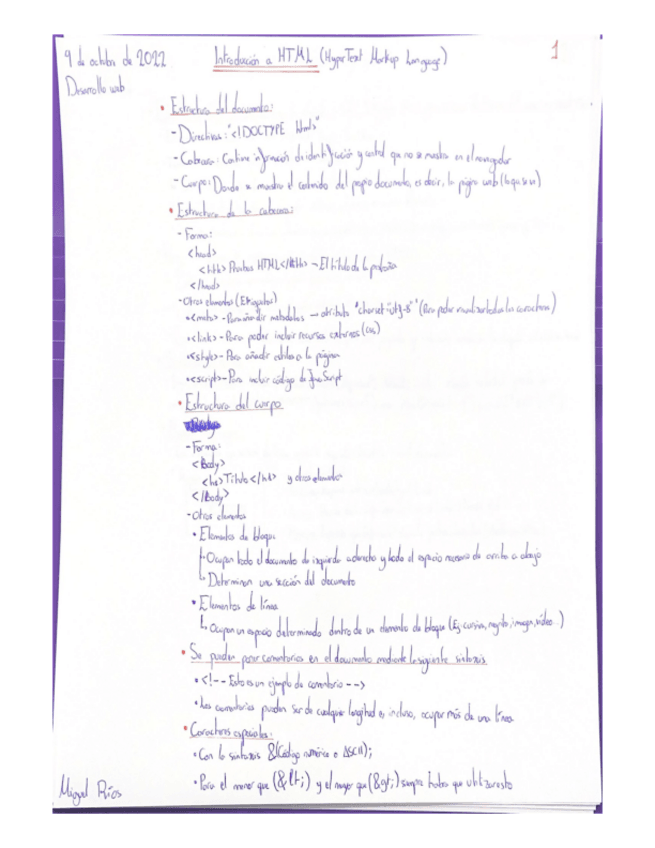 9 de octubre de 2022
Introducción a HTML (HyperText Markup Language)
1
Desarrollo web
• Estructura del documento:
- Directivas: "<!DOCTYPE html>"
- Cabecera: Contiene información de identificación y control que no se muestra en el navegador
- Cuerpo: Donde se muestra el contenido del propio documento, es decir, la página web (lo que se ve)
• Estructura de la cabecera:
- Forma:
<head>
<title> Pruebas HTML </title> → El título de la pestaña
</head>
- Otros elementos (Etiquetas)
• <meta> - Para añadir metadatos → atributo "charset=utf-8" (Para poder visualizar todos los caracteres)
• <link> - Para poder incluir recursos externos (CSS)
• <style> - Para añadir estilos a la página
• <script> - Para incluir código de JavaScript
• Estructura del cuerpo
- Forma:
<Body>
<h1> Título </h1> y otros elementos
</Body>
- Otros elementos
• Elementos de bloque
Ocupan todo el documento de izquierda a derecha y todo el espacio necesario de arriba a abajo
Determinan una sección del documento
• Elementos de línea
Ocupan un espacio determinado dentro de un elemento de bloque (Ej cursiva, negrita, imagen, vídeo...)
• Se pueden poner comentarios en el documento mediante la siguiente sintaxis
• <!-- Esto es un ejemplo de comentario -->
• Los comentarios pueden ser de cualquier longitud e, incluso, ocupar más de una línea
• Caracteres especiales:
• Con la sintaxis &(Código numérico o ASCII);
• Para el menor que (&lt;) y el mayor que (&gt;) siempre habrá que utilizar esto
Miguel Ríos